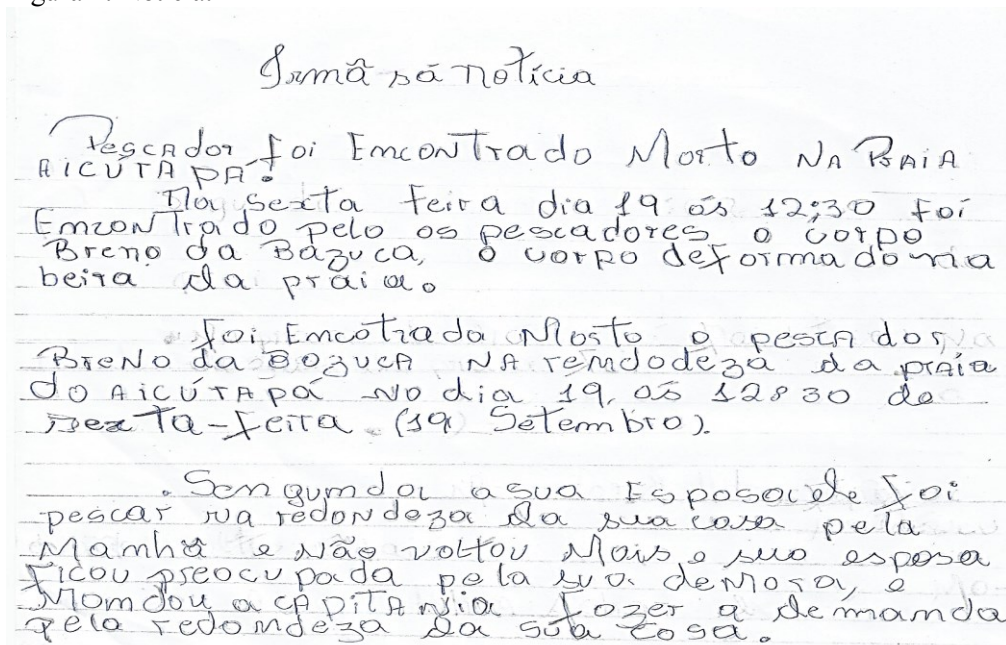 Irmã sá notícia
Pescador foi Emcontrado Morto NA BAIA
AICÚTAPÁ.
Na sexta feira dia 19 ás 12:30 foi
Emzontrado pelo os pescadores o corpo
Breno da Bazuca, o corpo deformado na
beira da práia.
Foi Emcotrado Morto o pescador
Breno da Bozuca NA remdodeza da praía
do AICÚTAPÁ No dia 19, ás 12830 de
Sexta-feira (19 Setembro).
Sengumda a sua Esposa ele foi
pescar na redondeza da sua casa pela
Manhã e Não voltou Mais e sua esposa
ficou preocupada pela sua demora, e
Momdou a cApitAnia fozer a demanda
pela redomdeza da sua cosa.